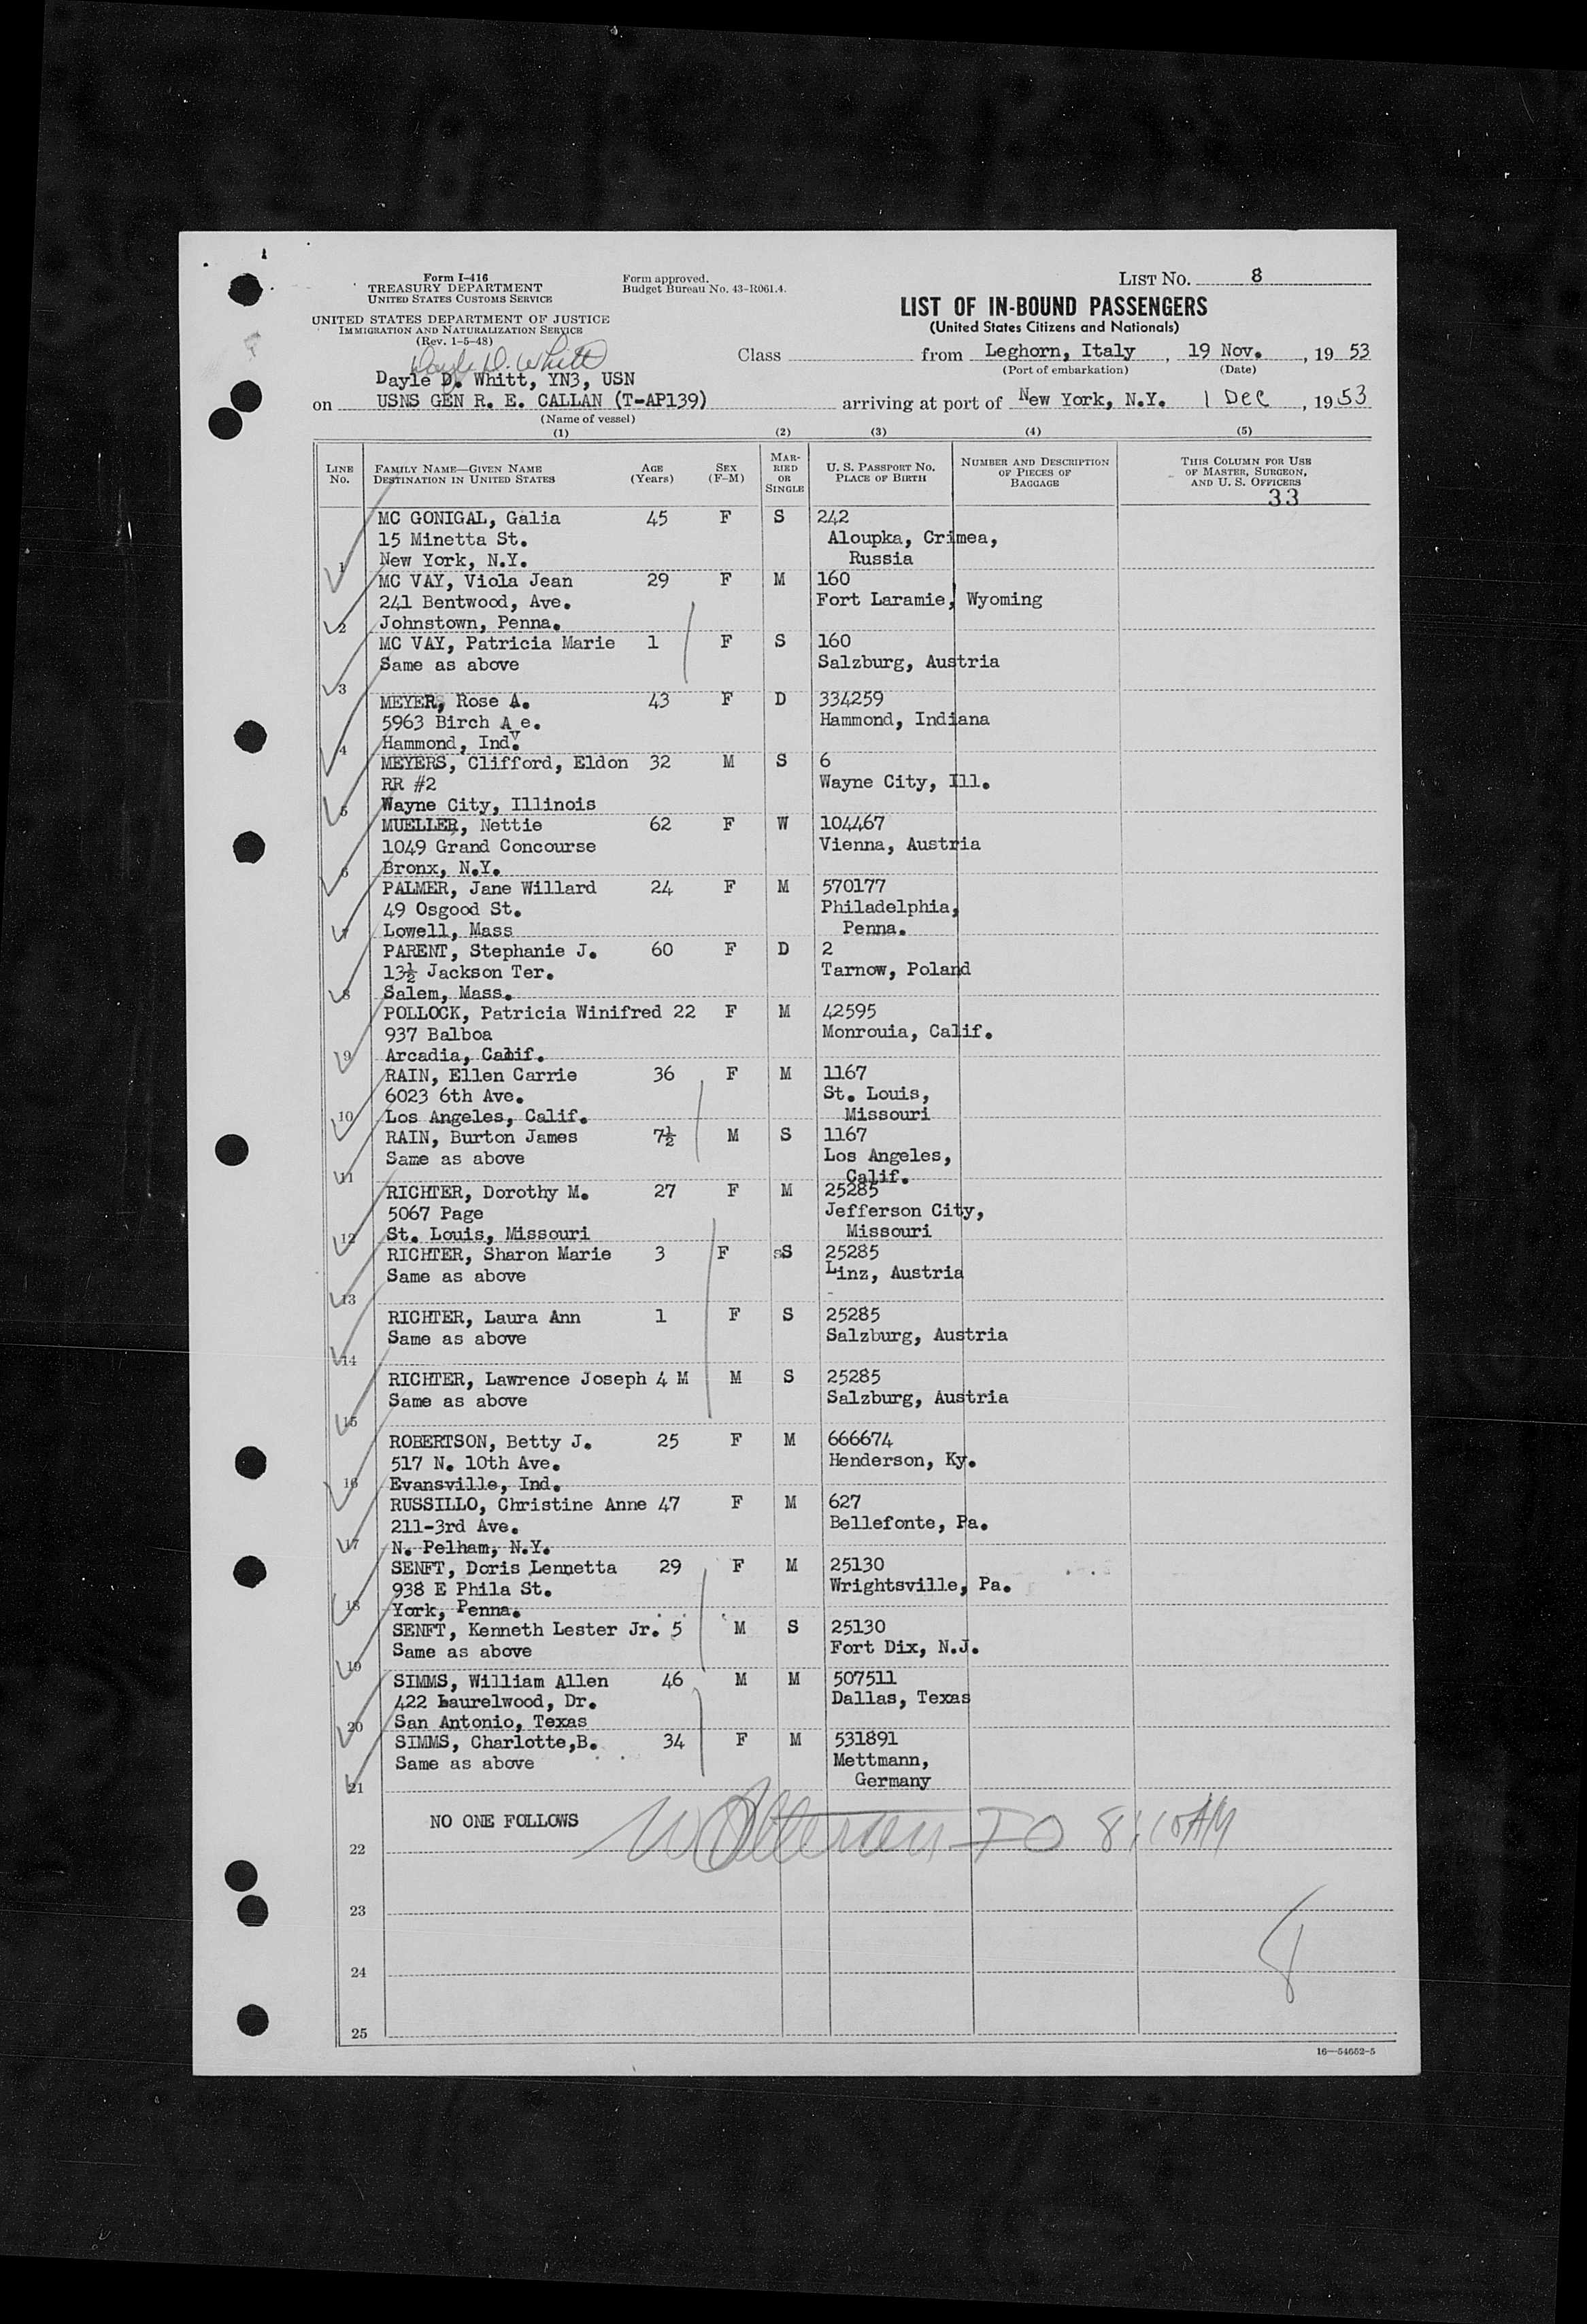 Form I-416
TREASURY DEPARTMENT
UNITED STATES CUSTOMS SERVICE
UNITED STATES DEPARTMENT OF JUSTICE
IMMIGRATION AND NATURALIZATION SERVICE
(Rev. 1-5-48)
Form approved.
Budget Bureau No. 43-R061.4.
LIST NO. 8
LIST OF IN-BOUND PASSENGERS
(United States Citizens and Nationals)
Dayle D. Whitt
Class from Leghorn, Italy, 19 Nov., 19 53
(Port of embarkation) (Date)
Dayle D. Whitt, YN3, USN
on USNS GEN R. E. CALLAN (T-AP139) arriving at port of New York, N.Y. 1 Dec, 19 53
(Name of vessel)
(1) (2) (3) (4) (5)
LINE NO. FAMILY NAME—GIVEN NAME DESTINATION IN UNITED STATES AGE (Years) SEX (F-M) MARRIED OR SINGLE U. S. PASSPORT NO. PLACE OF BIRTH NUMBER AND DESCRIPTION OF PIECES OF BAGGAGE THIS COLUMN FOR USE OF MASTER, SURGEON, AND U. S. OFFICERS
33
MC GONIGAL, Galia 45 F S 242
15 Minetta St. Aloupka, Crimea,
1 New York, N.Y. Russia
MC VAY, Viola Jean 29 F M 160
241 Bentwood, Ave. Fort Laramie, Wyoming
2 Johnstown, Penna.
MC VAY, Patricia Marie 1 F S 160
Same as above Salzburg, Austria
3
MEYER, Rose A. 43 F D 334259
5963 Birch Ave. Hammond, Indiana
4 Hammond, Ind.
MEYERS, Clifford, Eldon 32 M S 6
RR #2 Wayne City, Ill.
5 Wayne City, Illinois
MUELLER, Nettie 62 F W 104467
1049 Grand Concourse Vienna, Austria
6 Bronx, N.Y.
PALMER, Jane Willard 24 F M 570177
49 Osgood St. Philadelphia,
7 Lowell, Mass Penna.
PARENT, Stephanie J. 60 F D 2
13½ Jackson Ter. Tarnow, Poland
8 Salem, Mass.
POLLOCK, Patricia Winifred 22 F M 42595
937 Balboa Monrouia, Calif.
9 Arcadia, Calif.
RAIN, Ellen Carrie 36 F M 1167
6023 6th Ave. St. Louis,
10 Los Angeles, Calif. Missouri
RAIN, Burton James 7½ M S 1167
Same as above Los Angeles,
11 Calif.
RICHTER, Dorothy M. 27 F M 25285
5067 Page Jefferson City,
12 St. Louis, Missouri Missouri
RICHTER, Sharon Marie 3 F S 25285
Same as above Linz, Austria
13
RICHTER, Laura Ann 1 F S 25285
Same as above Salzburg, Austria
14
RICHTER, Lawrence Joseph 4 M M S 25285
Same as above Salzburg, Austria
15
ROBERTSON, Betty J. 25 F M 666674
517 N. 10th Ave. Henderson, Ky.
16 Evansville, Ind.
RUSSILLO, Christine Anne 47 F M 627
211-3rd Ave. Bellefonte, Pa.
17 N. Pelham, N.Y.
SENFT, Doris Lennetta 29 F M 25130
938 E Phila St. Wrightsville, Pa.
18 York, Penna.
SENFT, Kenneth Lester Jr. 5 M S 25130
Same as above Fort Dix, N.J.
19
SIMMS, William Allen 46 M M 507511
422 Laurelwood, Dr. Dallas, Texas
20 San Antonio, Texas
SIMMS, Charlotte,B. 34 F M 531891
Same as above Mettmann,
21 Germany
NO ONE FOLLOWS
22
23
8
24
25
16—54652-5